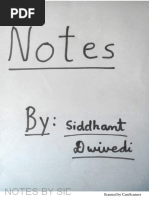 Notes
By: Siddhant
Dwivedi
NOTES BY SID
Scanned by CamScanner